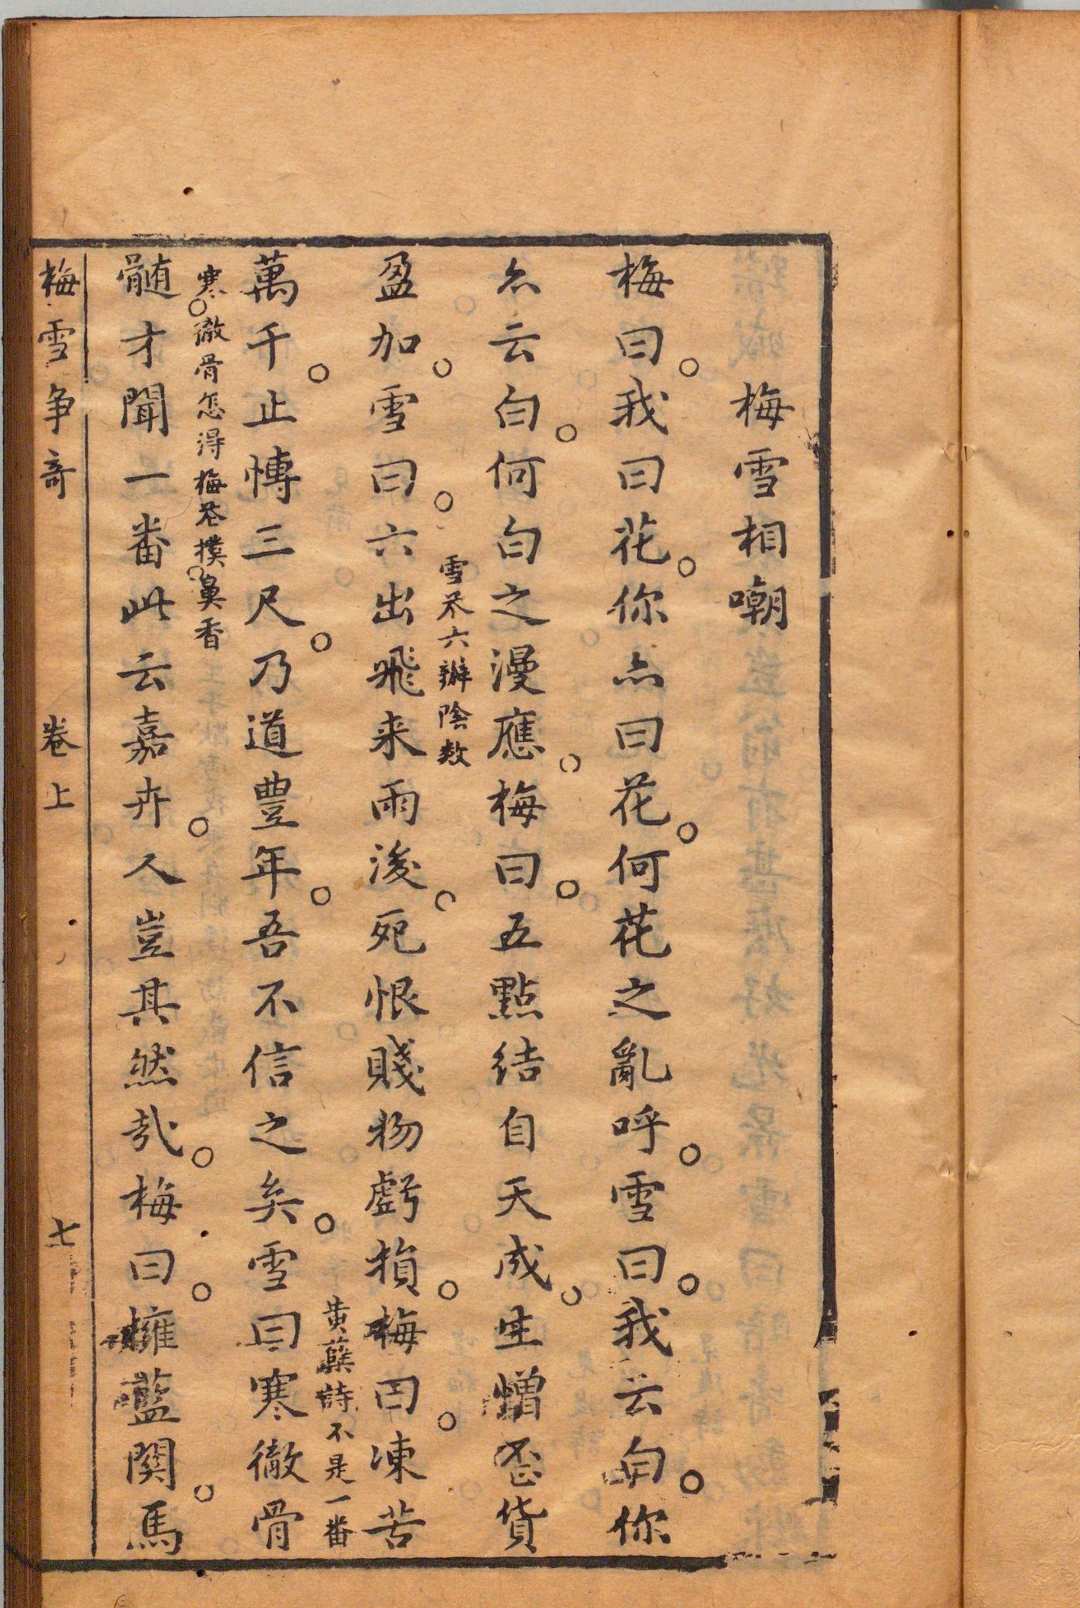 梅雪相嘲
梅曰我曰花你亦曰花何花之亂呼雪曰我云白你
亦云白何白之漫應梅曰五點結自天成生憎歪貨
雪花六瓣陰数
盈加雪曰六出飛来雨後死恨賤物虧損梅曰凍苦
黄蘗詩不是一番
萬千止慱三尺乃道豊年吾不信之矣雪曰寒徹骨
寒徹骨怎得梅花撲鼻香
髄才聞一番此云嘉卉人豈其然哉梅曰擁藍関馬
梅雪争竒
卷上
七